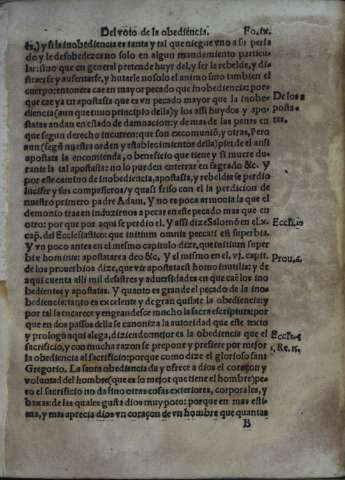 Del voto de la obediẽcia. Fo. ix.
ds,) y si la inobediencia es tanta y tal que niegue vno a su perla
do y le desobedezca no solo en algun mandamiento particu-
lar: sino que en general pretende huyr del, y ser la rebelde, y dis
traerse y ausentarse, y hurtarle no solo el animo sino tambien el
cuerpo: entonces cae en mayor pecado que inobediencia: por
que cae ya en apostasia que es vn pecado mayor que la inobe-
diencia (aun que tuuo principio della) y los assi huydos y apo-
statas andan en estado de damnacion: de mas de las penas en
que segun derecho incurren: que son excomuniõ, y otras, Pero
aun (segũ nuestra orden y establecimientos della) pierde el ansi
apostata la encomienda, o beneficio que tiene y si muere du-
rante la tal apostasia: no lo pueden enterrar en sagrado &c. Y
por este camino de inobediencia, apostasia, y rebeldia se perdio
lucifer y sus compañeros / y quasi friso con el la perdicion de
nuestro primero padre Adam, Y no es poca armonia la que el
demonio trae en induzirnos a pecar en este pecado mas que en
otro: por que por aqui se perdio el. Y assi dize Salomõ en el. x.
cap. del Ecclesiastico: que initium omnis peccati est superbia.
Y vn poco antes en el mesmo capitulo dize, que initium super
bie hominis: apostatare a deo &c, Y el mismo en el. vj. capit.
de los prouerbios dize, que vir apostata est homo inutilis: y de
aqui cuenta alli mil desastres y aduersidades en que caẽ los ino
bedientes y apostatas. Y quanto es grande el pecado de la ino-
bediencia: tanto es excelente y de gran quilate la obediencia: y
por tal la encarece y engrandesce mucho la sacra escriptura: por
que en dos passos della se canoniza la autoridad que este texto
y prologo aqui alega, diziendo: mejor es la obediencia que el
sacrificio, y con mucha razon se prepone y presiere por mejor
la obediencia al sacrificio: porque como dize el glorioso sant
Gregorio. La sacra obediencia da y ofrece a dios el coraçon y
voluntad del hombre (que es lo mejor que tiene el hombre) pe-
ro el sacrificio no da sino otras cosas exteriores, corporales, y
baxas: de las quales gusta dios muy poco: porque en mas esti-
ma, y mas aprecia dios vn coraçon de vn hombre que quantas
B
De los a
posta-
tas.
Eccli. 10
Prou. 6.
Eccle. 4
1, Re. 15,